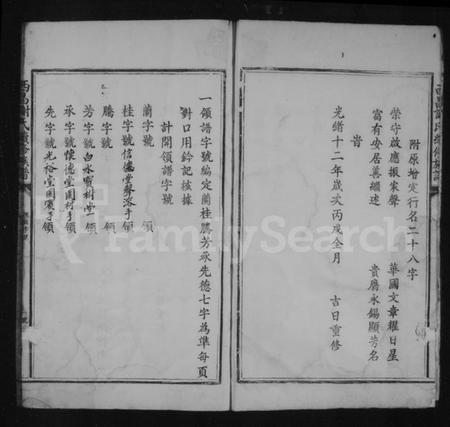 附原增定行名二十八字
榮守啟應振家聲 華國文章耀日星
富有安居善繼述 貴席永錫顯芳名
旹
光緒十二年歲次丙戌金月 吉日重修
一領譜字號編定蘭桂騰芳承先德七字為準每頁
對口用鈐記核據
計開領譜字號
蘭字號 領
桂字號信德堂聲溶手領
騰字號 領
芳字號白水寶樹堂 領
承字號懷德堂閏村手領
先字號光裕堂閏襄手領
FamilySearch